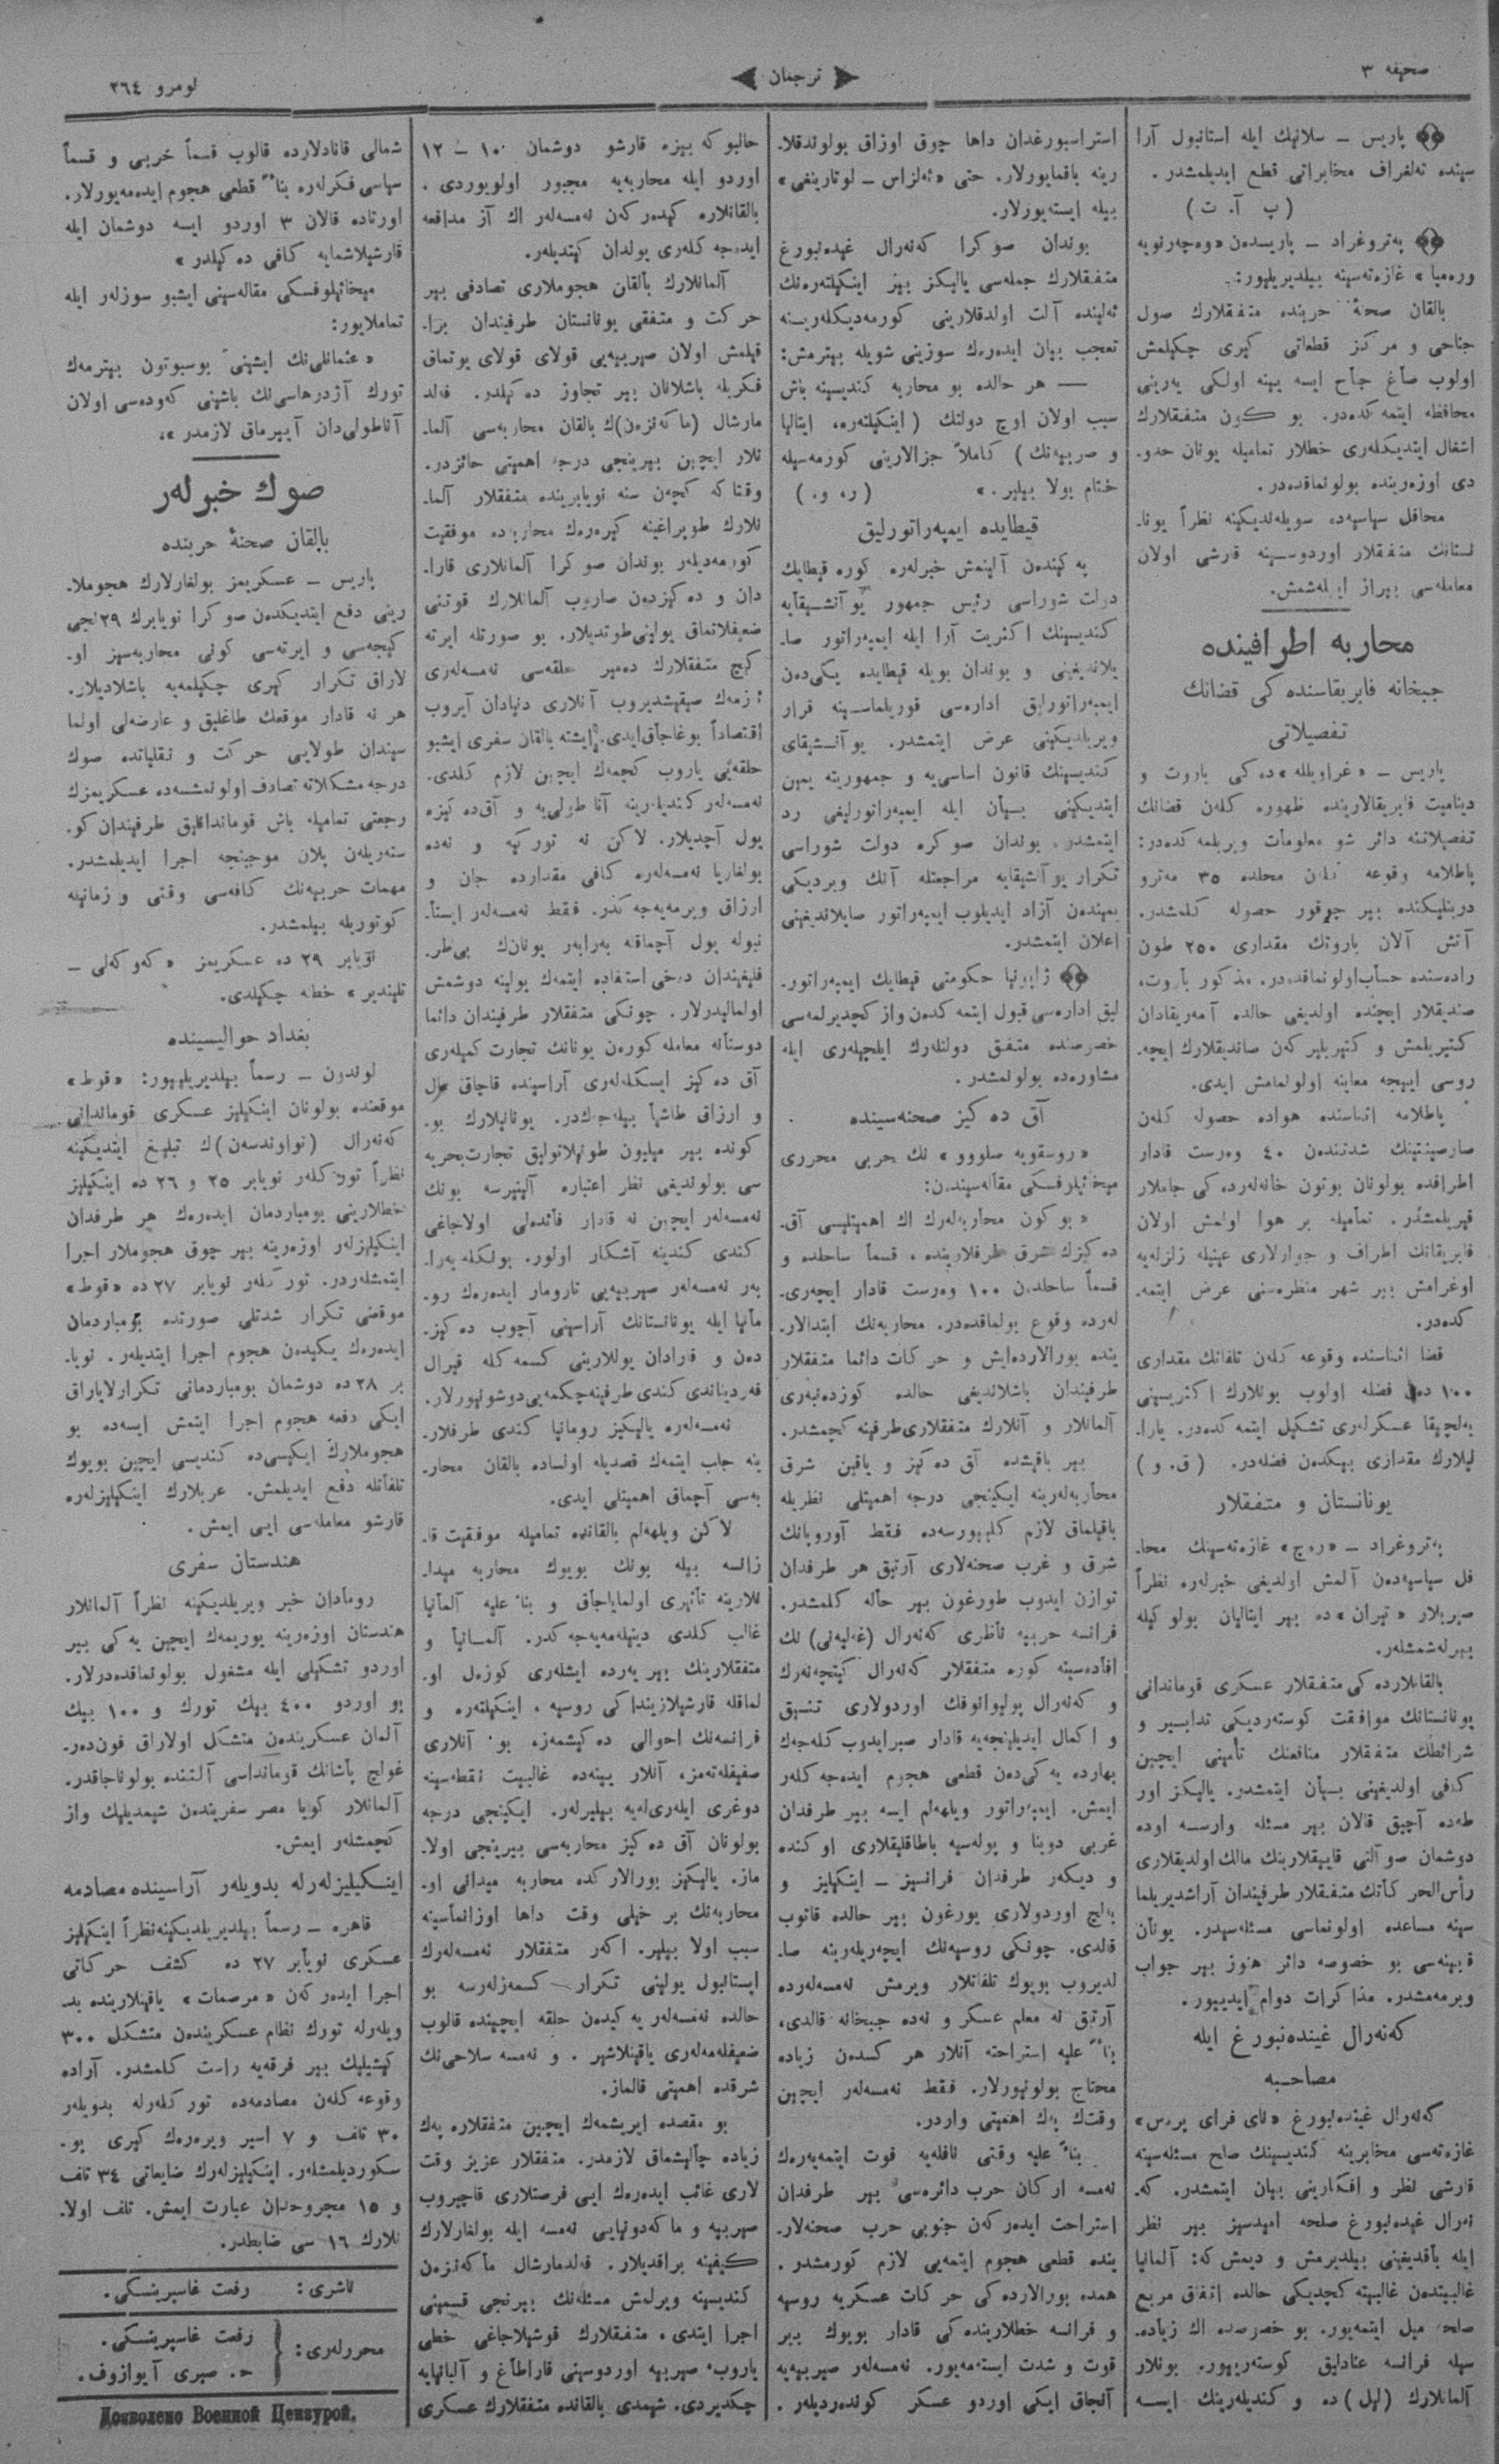 صحیفه ۳
ترجمان
نومرو ٢٦٤
پاریس ــ سلانیك ایله استانبول آرا
سینده تەلغراف مخابراتی قطع ایدیلمشدر.
(پ. آ. ت)
پەتروغراد ــ پاریسدن «وەچەرنویه
ورەمیا» غازەتەسینه بیلدیریلیور:
بالقان صحنهٔ حربنده متفقلارك صول
جناحی و مركز قطعاتی كیری چكیلمش
اولوب صاغ جناح ایسه ینه اولكی یەرینی
محافظه ایتمەكدەدر. بو كون متفقلارك
اشغال ایتدیكلەری خطلار تمامیله یونان حدو-
دی اوزەرینده بولونماقدەدر.
محافل سیاسیەده سویلەندیكینه نظراً یونا-
نستانك متفقلار اوردوسینه قارشی اولان
معاملەسی بیراز ایلەشمش.
محاربه اطرافینده
جبخانه فابریقاسنده كی قضانك
تفصیلاتی
پاریس ــ «غراویلله» ده كی باروت و
دینامیت فابریقالارینده ظهوره كلەن قضانك
تفصیلاتنه دائر شو معلومات ویریلمەكدەدر:
پاطلامه وقوعه كلەن محلده ٣٥ مەترو
درینلیكنده بیر چوقور حصوله كلمشدر.
آتش آلان باروتك مقداری ٢٥٠ طون
رادەسنده حساب اولونماقدەدر. مذكور باروت،
صندیقلار ایچنده اولدیغی حالده آمەریقادان
كتیریلمش و كتیریلیر كەن صاندیقلارك ایچه-
روسی اییجه معاینه اولونمامش ایدی.
پاطلامه اثناسنده هواده حصوله كلەن
صارصینتینك شدتندەن ٤٠ وەرست قادار
اطرافده بولونان بوتون خانەلەرده كی جاملار
قیریلمشدر. تمامیله بر هوا اولمش اولان
فابریقانك اطراف و جوارلاری عینیله زلزلەیه
اوغرامش بیر شهر منظرەسنی عرض ایتمه-
كدەدر.
قضا اثناسنده وقوعه كلەن تلفاتك مقداری
١٠٠ دەن فضله اولوب بونلارك اكثریسینی
بەلچیقا عسكرلەری تشكیل ایتمەكدەدر. یارا-
لیلارك مقداری بیكدەن فضلەدر. (ق. و)
یونانستان و متفقلار
پەتروغراد ــ «رەچ» غازەتەسینك محا-
فل سیاسیەدەن آلمش اولدیغی خبرلەره نظراً
صیربلار «تیران» ده بیر ایتالیان بولوكیله
بیرلەشمشلەر.
بالقانلارده كی متفقلار عسكری قوماندانی
یونانستانك موافقت كوستەردیكی تدابیر و
شرائطك متفقلار منافعنك تأمینی ایچین
كافی اولدیغینی بیان ایتمشدر. یالیكز اور
طەده آچیق قالان بیر مسئله وارسه اوده
دوشمان صو آلتی قاییقلارینك مالك اولدیقلاری
رأس الحركاتك متفقلار طرفیندان آراشدیریلما
سینه مساعده اولونماسی مسئلەسیدر. یونان
قابینەسی بو خصوصه دائر هنوز بیر جواب
ویرمەمشدر. مذاكرات دوام ایدییور.
كەنەرال غیندەنبورغ ایله
مصاحبه
كەنەرال غیندەنبورغ «نای فرای پرەس»
غازەتەسی مخابرینه كندیسینك صلح مسئلەسینه
قارشی نظر و افكارینی بیان ایتمشدر. كه-
نەرال غیدەنبورغ صلحه امیدسیز بیر نظر
ایله باقدیغینی بیلدیرمش و دیمش كه: آلمانیا
غالبیتدەن غالبیته كچدیكی حالده اتفاق مربع
صلحه میل ایتمەیور. بو خصوصده اك زیاده-
سیله فرانسه عنادلیق كوستەرییور. بونلار
آلمانلارك (لیل) ده و كندیلەرینك ایسه
استراسبورغدان داها چوق اوزاق بولوندقلا-
رینه باقمایورلار. حتی «ئەلزاس ــ لوتارینغی»
بیله ایستەیورلار.
بوندان صوكرا كەنەرال غیدەنبورغ
متفقلارك جملەسی یالیكز بیز اینكیلتەرەنك
ئەلینده آلت اولدقلارینی كورمەدیكلەرینه
تعجب بیان ایدەرەك سوزینی شویله بیترمش:
— هر حالده بو محاربه كندیسینه باش
سبب اولان اوچ دولتك (اینكیلتەره، ایتالیا
و صربیەنك) كاملاً جزالارینی كورمەسیله
ختام بولا بیلیر.» (ر. و.)
قیطایده ایمپەراتورلیق
پەكیندەن آلینمش خبرلەره كوره قیطایك
دولت شوراسی رئیس جمهور یوآنشیقایه
كندیسینك اكثریت آرا ایله ایمپەراتور صا-
یلاندیغینی و بوندان بویله قیطایده یكیدەن
ایمپەراتورلیق ادارەسی قوریلماسینه قرار
ویریلدیكینی عرض ایتمشدر. یوآنشیقای
كندیسینك قانون اساسی یه و جمهوریته یمین
ایتدیكینی بیان ایله ایمپەراتورلیغی رد
ایتمشدر. بوندان صوكره دولت شوراسی
تكرار یوآنشیقایه مراجعتله آنك ویردیكی
یمیندەن آزاد ایدیلوب ایمپەراتور صایلاندیغینی
اعلان ایتمشدر.
ژاپونیا حكومتی قیطایك ایمپەراتور-
لیق ادارەسی قبول ایتمەكدەن واز كچدیرلمەسی
خصوصنده متفق دولتلەرك ایلچیلەری ایله
مشاورەده بولونمشدر.
آق دەكیز صحنەسینده
«روسقویه صلووو» نك حربی محرری
میخائیلوفسكی مقالەسیندەن:
«بوكون محاربەلەرك اك اهمیتلیسی آق-
دەكیزك شرق طرفلارینده، قسماً ساحلده و
قسماً ساحلدەن ١٠٠ وەرست قادار ایچەری-
لەرده وقوع بولماقدەدر. محاربەنك ابتدالار-
ینده بورالاردەایش و حركات دائما متفقلار
طرفیندان باشلاندیغی حالده كوزدەنبەری
آلمانلار و آنلارك متفقلاری طرفینه كچمشدر.
بیر باقیشده آق دەكیز و یاقین شرق
محاربەلەرینه ایكینجی درجه اهمیتلی نظریله
باقیلماق لازم كلیورسەده فقط آوروپانك
شرق و غرب صحنەلاری آرتیق هر طرفدان
توازن ایدوب طورغون بیر حاله كلمشدر.
فرانسه حربیه ناظری كەنەرال (غەلیەنی) نك
افادەسینه كوره متفقلار كەنەرال كیتچەنەرك
و كەنەرال پولیوانوفك اوردولاری تنسیق
و اكمال ایدیلینجەیه قادار صبر ایدوب كلەجەك
بهارده یەكیدەن قطعی هجوم ایدەجەكلەر
ایمش. ایمپەراتور ویلهەلم ایسه بیر طرفدان
غربی دوینا و پولەسیه باطاقلیقلاری اوكنده
و دیكەر طرفدان فرانسیز ــ اینكیلیز و
بەلچ اوردولاری یورغون بیر حالده قالوب
قالدی. چونكی روسیەنك ایچەریلەرینه صا-
لدیروب بویوك تلفاتلار ویرمش نەمسەلەرده
آرتیق نه معلم عسكر و نەده جبخانه قالدی،
بناءً علیه استراحته آنلار هر كسدەن زیاده
محتاج بولونیورلار. فقط نەمسەلەر ایچین
وقتك پك اهمیتی واردر.
بناءً علیه وقتی نافلەیه فوت ایتمەیەرەك
نەمسه اركان حرب دائرەسی بیر طرفدان
استراحت ایدەركەن جنوبی حرب صحنەلار-
ینده قطعی هجوم ایتمەیی لازم كورمشدر.
همده بورالارده كی حركات عسكریه روسیه
و فرانسه خطلارینده كی قادار بویوك بیر
قوت و شدت ایستەمەیور. نەمسەلەر صیربیەیه
آنجاق ایكی اوردو عسكر كوندەردیلەر.
حالبوكه بیزه قارشو دوشمان ١٠ ــ ١٢
اوردو ایله محاربەیه مجبور اولویوردی.
بالقانلاره كیدەركەن نەمسەلەر اك آز مدافعه
ایدەجەكلەری یولدان كیتدیلەر.
آلمانلارك بالقان هجوملاری تصادفی بیر
حركت و متفقی یونانستان طرفیندان برا-
قیلمش اولان صیربیەیی قولای قولای یوتماق
فكریله باشلانان بیر تجاوز دەكیلدر. فەلد
مارشال (ماكەنزەن)ك بالقان محاربەسی آلما-
نلار ایچین بیرینجی درجه اهمیتی حائزدر.
وقتا كه كچەن سنه نویابرینده متفقلار آلما-
نلارك طوپراغینه كیرەرەك محاربەده موفقیت
كورمەدیلەر بوندان صوكرا آلمانلاری قارا-
دان و دەكیزدەن صاروب آلمانلارك قوتنی
ضعیفلاتماق یولینی طوتدیلار. بو صورتله ایرته
كیچ متفقلارك دەمیر حلقەسی نەمسەلەری
ئزمەك صیقیشدیروب آنلاری دنیادان آیروب
اقتصاداً بوغاجاق ایدی. ایشته بالقان سفری ایشبو
حلقەیی یاروب كچمەك ایچین لازم كلدی.
نەمسەلەر كندیلەرینه آناطولی یه و آق دەكیزه
یول آچدیلار. لاكن نه توركیه و نەده
بولغاریا نەمسەلەره كافی مقدارده جان و
ارزاق ویرمەیەجەكدر. فقط نەمسەلەر ایستا-
نبوله یول آچماقله بەرابەر یونانك بی‌طر-
فلیغیندان دخی استفاده ایتمەك یولینه دوشمش
اولمالیدرلار. چونكی متفقلار طرفیندان دائما
دوستانه معامله كورەن یونانك تجارت كمیلەری
آق دەكیز ایسكلەلەری آراسینده قاچاق مال
و ارزاق طاشیا بیلەجەكدر. یونانیلارك بو-
كونده بیر میلیون طونیلاتولیق تجارت بحریه
سی بولوندیغی نظر اعتباره آلینیرسه بونك
نەمسەلەر ایچین نه قادار فائدەلی اولاجاغی
كندی كندینه آشكار اولور. بونكله بەرا-
بەر نەمسەلەر صیربیەیی تارومار ایدەرەك رو-
مانیا ایله یونانستانك آراسینی آچوب دەكیز-
دەن و قارادان یوللارینی كسمەكله قیرال
فەردیناندی كندی طرفینه چكمەیی دوشونیورلار.
نەمسەلەره یالیكیز رومانیا كندی طرفلار-
ینه جلب ایتمەك قصدیله اولساده بالقان محار-
بەسی آچماق اهمیتلی ایدی.
لاكن ویلهەلم بالقانده تمامیله موفقیت قا-
زانسه بیله بونك بویوك محاربه میدا-
نلارینه تأثیری اولمایاجاق و بناءً علیه آلمانیا
غالب كلدی دینیلەمەیەجەكدر. آلمانیا و
متفقلارینك بیر یەرده ایشلەری كوزەل او-
لماقله قارشیلازینداكی روسیه، اینكیلتەره و
فرانسەنك احوالی دەكیشمەز، بو آنلاری
ضعیفلەتەمز، آنلار ینەده غالبیت نقطەسینه
دوغری ایلەری‌لەیه بیلیرلەر. ایكینجی درجه
بولونان آق دەكیز محاربەسی بیرینجی اولا-
ماز. یالیكیز بورالاركده محاربه میدانی او-
محاربەنك بر خیلی وقت داها اوزانماسینه
سبب اولا بیلیر. اكەر متفقلار نەمسەلەرك
ایستانبول یولینی تكرار كسمەزلەرسه بو
حالده نەمسەلەر یەكیدەن حلقه ایچینده قالوب
ضعیفلەمەلەری یاقینلاشیر. و نەمسه سلاحی‌نك
شرقده اهمیتی قالماز.
بو مقصده ایریشمەك ایچین متفقلاره پەك
زیاده چالیشماق لازمدر. متفقلار عزیز وقت
لاری غائب ایدەرەك ایی فرصتلاری قاچیروب
صیربیه و ماكەدونیایی نەمسه ایله بولغارلارك
كیفینه براقدیلار. فەلدمارشال ماكەنزەن
كندیسینه ویرلمش مسئلەنك بیرنجی قسمینی
اجرا ایتدی، متفقلارك قوشیلاجاغی خطی
یاروب صیربیه اوردوسینی قاراطاغ و آلبانیایه
چكدیردی. شیمدی بالقانده متفقلارك عسكری
شمالی قانادلارده قالوب قسماً حربی و قسماً
سیاسی فكرلەره بناءً قطعی هجوم ایدەمەیورلار.
اورتاده قالان ٣ اوردو ایسه دوشمان ایله
قارشیلاشمایه كافی دەكیلدر»
میخائیلوفسكی مقالەسینی ایشبو سوزلەر ایله
تماملایور:
«عثمانلی‌نك ایشینی بوسبوتون بیترمەك
تورك آژدرهاسی‌نك باشینی كەودەسی اولان
آناطولی‌دان آییرماق لازمدر».
صوك خبرلەر
بالقان صحنهٔ حربنده
پاریس ــ عسكریمز بولغارلارك هجوملا-
رینی دفع ایتدیكدەن صوكرا نویابرك ٢٩نجی
كیجەسی و ایرتەسی كونی محاربەسیز او-
لاراق تكرار كیری چكیلمەیه باشلادیلار.
هر نه قادار موقعك طاغلیق و عارضەلی اولما
سیندان طولایی حركت و نقلیاتده صوك
درجه مشكلاته تصادف اولونمشسەده عسكریمزك
رجعتی تمامیله باش قوماندانلیق طرفیندان كو-
ستەریلەن پلان موجبنجه اجرا ایدیلمشدر.
مهمات حربیەنك كافەسی وقتی و زمانیله
كوتوریله بیلمشدر.
نویابر ٢٩ ده عسكریمز «كەوكەلی ــ
تلیندیر» خطه چكیلدی.
بغداد حوالیسینده
لوندون ــ رسماً بیلدیریلیور: «قوط»
موقعنده بولونان اینكیلیز عسكری قوماندانی
كەنەرال (تواوندسەن)ك تبلیغ ایتدیكینه
نظراً توركلەر نویابر ٢٥ و ٢٦ ده اینكیلیز
خطلارینی بومباردمان ایدەرەك هر طرفدان
اینكیلیزلەر اوزەرینه بیر چوق هجوملار اجرا
ایتمشلەردر. توركلەر نویابر ٢٧ ده «قوط»
موقعنی تكرار شدتلی صورتده بومباردمان
ایدەرەك یكیدەن هجوم اجرا ایتدیلەر. نویا-
بر ٢٨ ده دوشمان بومباردمانی تكرارلایاراق
ایكی دفعه هجوم اجرا ایتمش ایسەده بو
هجوملارك ایكیسی‌ده كندیسی ایچین بویوك
تلفاتله دفع ایدیلمش. عربلارك اینكیلیزلەره
قارشو معاملەسی ایی ایمش.
هندستان سفری
رومادان خبر ویریلدیكینه نظراً آلمانلار
هندستان اوزەرینه یوریمەك ایچین یەكی بیر
اوردو تشكیلی ایله مشغول بولونماقدەدرلار.
بو اوردو ٤٠٠ بیك تورك و ١٠٠ بیك
آلمان عسكریندەن متشكل اولاراق فون‌دەر-
غولچ پاشانك قومانداسی آلتنده بولوناجاقدر.
آلمانلار كویا مصر سفریندەن شیمدیلیك واز
كچمشلەر ایمش.
اینكیلیزلەرله بدویلەر آراسینده مصادمه
قاهره ــ رسماً بیلدیریلدیكینه نظراً اینكیلیز
عسكری نویابر ٢٧ ده كشف حركاتی
اجرا ایدەركەن «مرصمات» یاقینلارینده بد-
ویلەرله تورك نظام عسكریندەن متشكل ٣٠٠
كیشیلیك بیر فرقەیه راست كلمشدر. آراده
وقوعه كلەن مصادمەده توركلەرله بدویلەر
٣٠ تلف و ٧ اسیر ویرەرەك كیری پو-
سكوردیلمشلەر. اینكیلیزلەرك ضایعاتی ٣٤ تلف
و ١٥ مجروحدان عبارت ایمش. تلف اولا-
نلارك ١٦ سی ضابطدر.
ناشری: رفعت غاسپرینسكی.
محررلەری: رفعت غاسپرینسكی.
ح. صبری آیوازوف.
Дозволено Военной Цензурой.